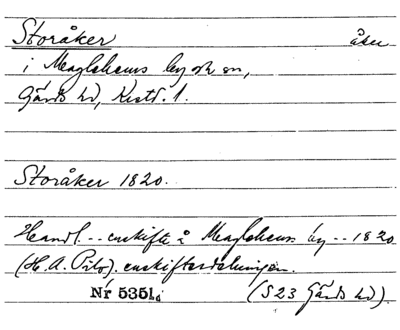 Storåker åker
i Maglehems by o sn,
Gärds hd, Krist. l.
Storåker 1820.
Handl. -- enskifte å Maglehems by -- 1820
(H. A. ). enskiftesdelningen.
Nr 5351. (S 23 Gärds hd).